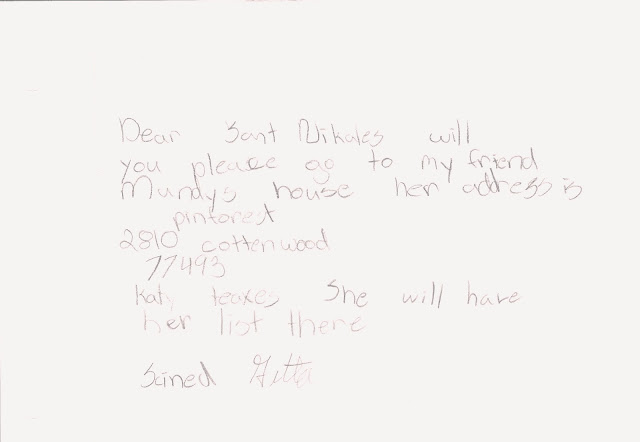 Dear Sant Nikales will
you please go to my friend
Mundys house her address is
pintorest
2810 cottenwood
77493
Katy teaxes She will have
her list there
Sained Gitta